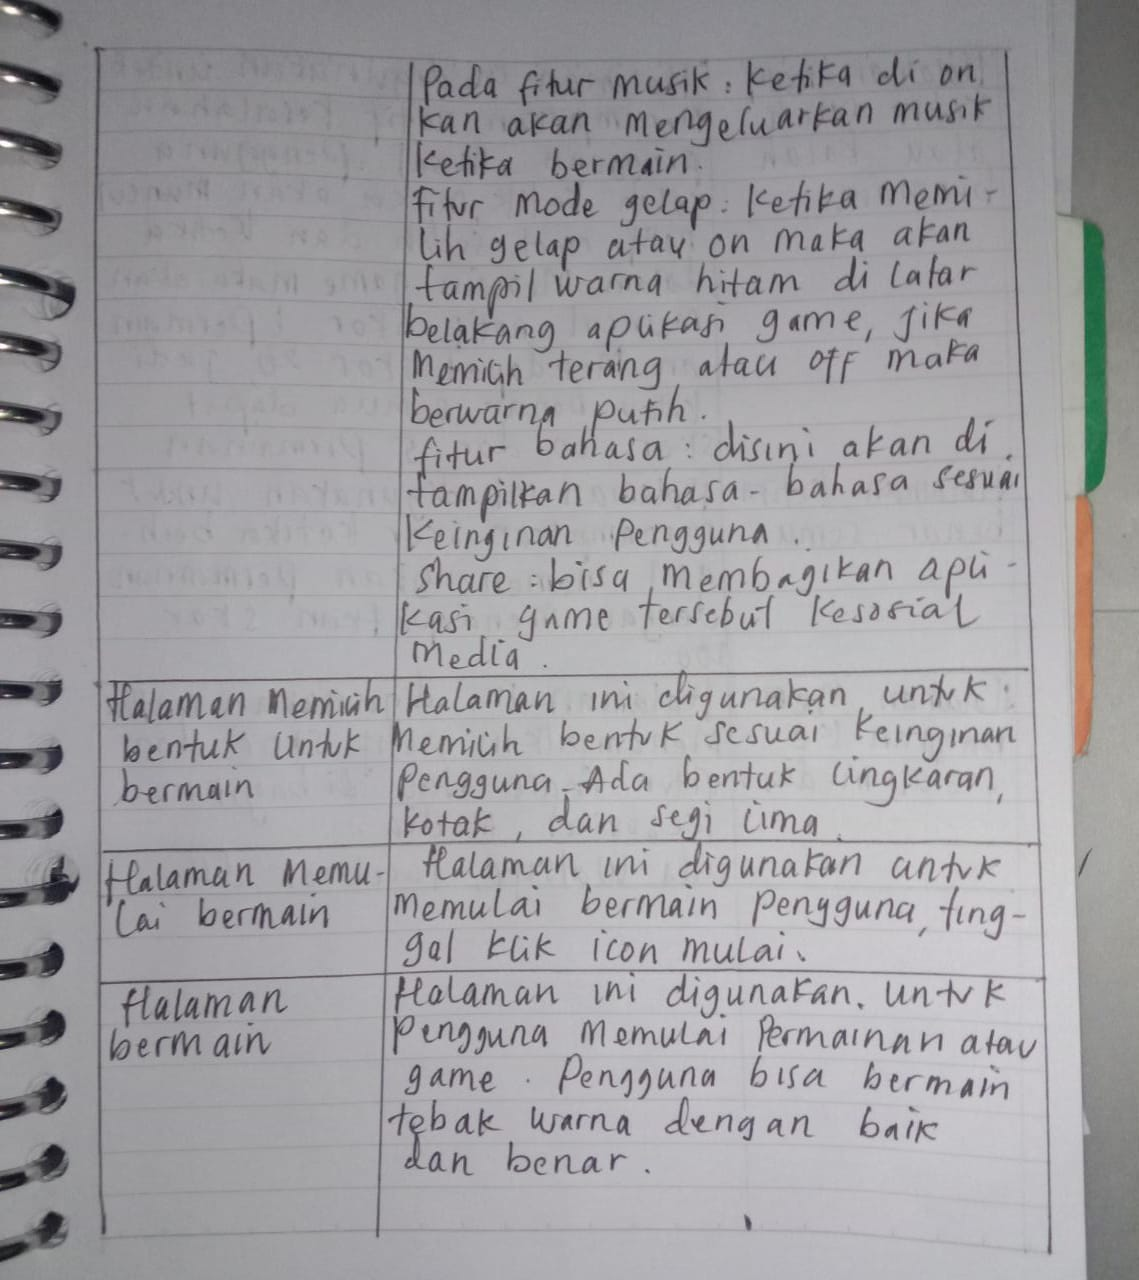 Pada fitur musik : ketika di on
kan akan mengeluarkan musik
ketika bermain.
fitur mode gelap : ketika memi-
lih gelap atau on maka akan
tampil warna hitam di latar
belakang aplikasi game, jika
memilih terang atau off maka
berwarna putih.
fitur bahasa : disini akan di
tampilkan bahasa-bahasa sesuai
keinginan pengguna.
share : bisa membagikan apli-
kasi game tersebut kesosial
media.
Halaman memilih
bentuk untuk
bermain
Halaman ini digunakan untuk
memilih bentuk sesuai keinginan
pengguna. Ada bentuk lingkaran,
kotak, dan segi lima.
Halaman memu-
lai bermain
Halaman ini digunakan untuk
memulai bermain pengguna, ting-
gal klik icon mulai.
Halaman
bermain
Halaman ini digunakan. untuk
pengguna memulai permainan atau
game. Pengguna bisa bermain
tebak warna dengan baik
dan benar.